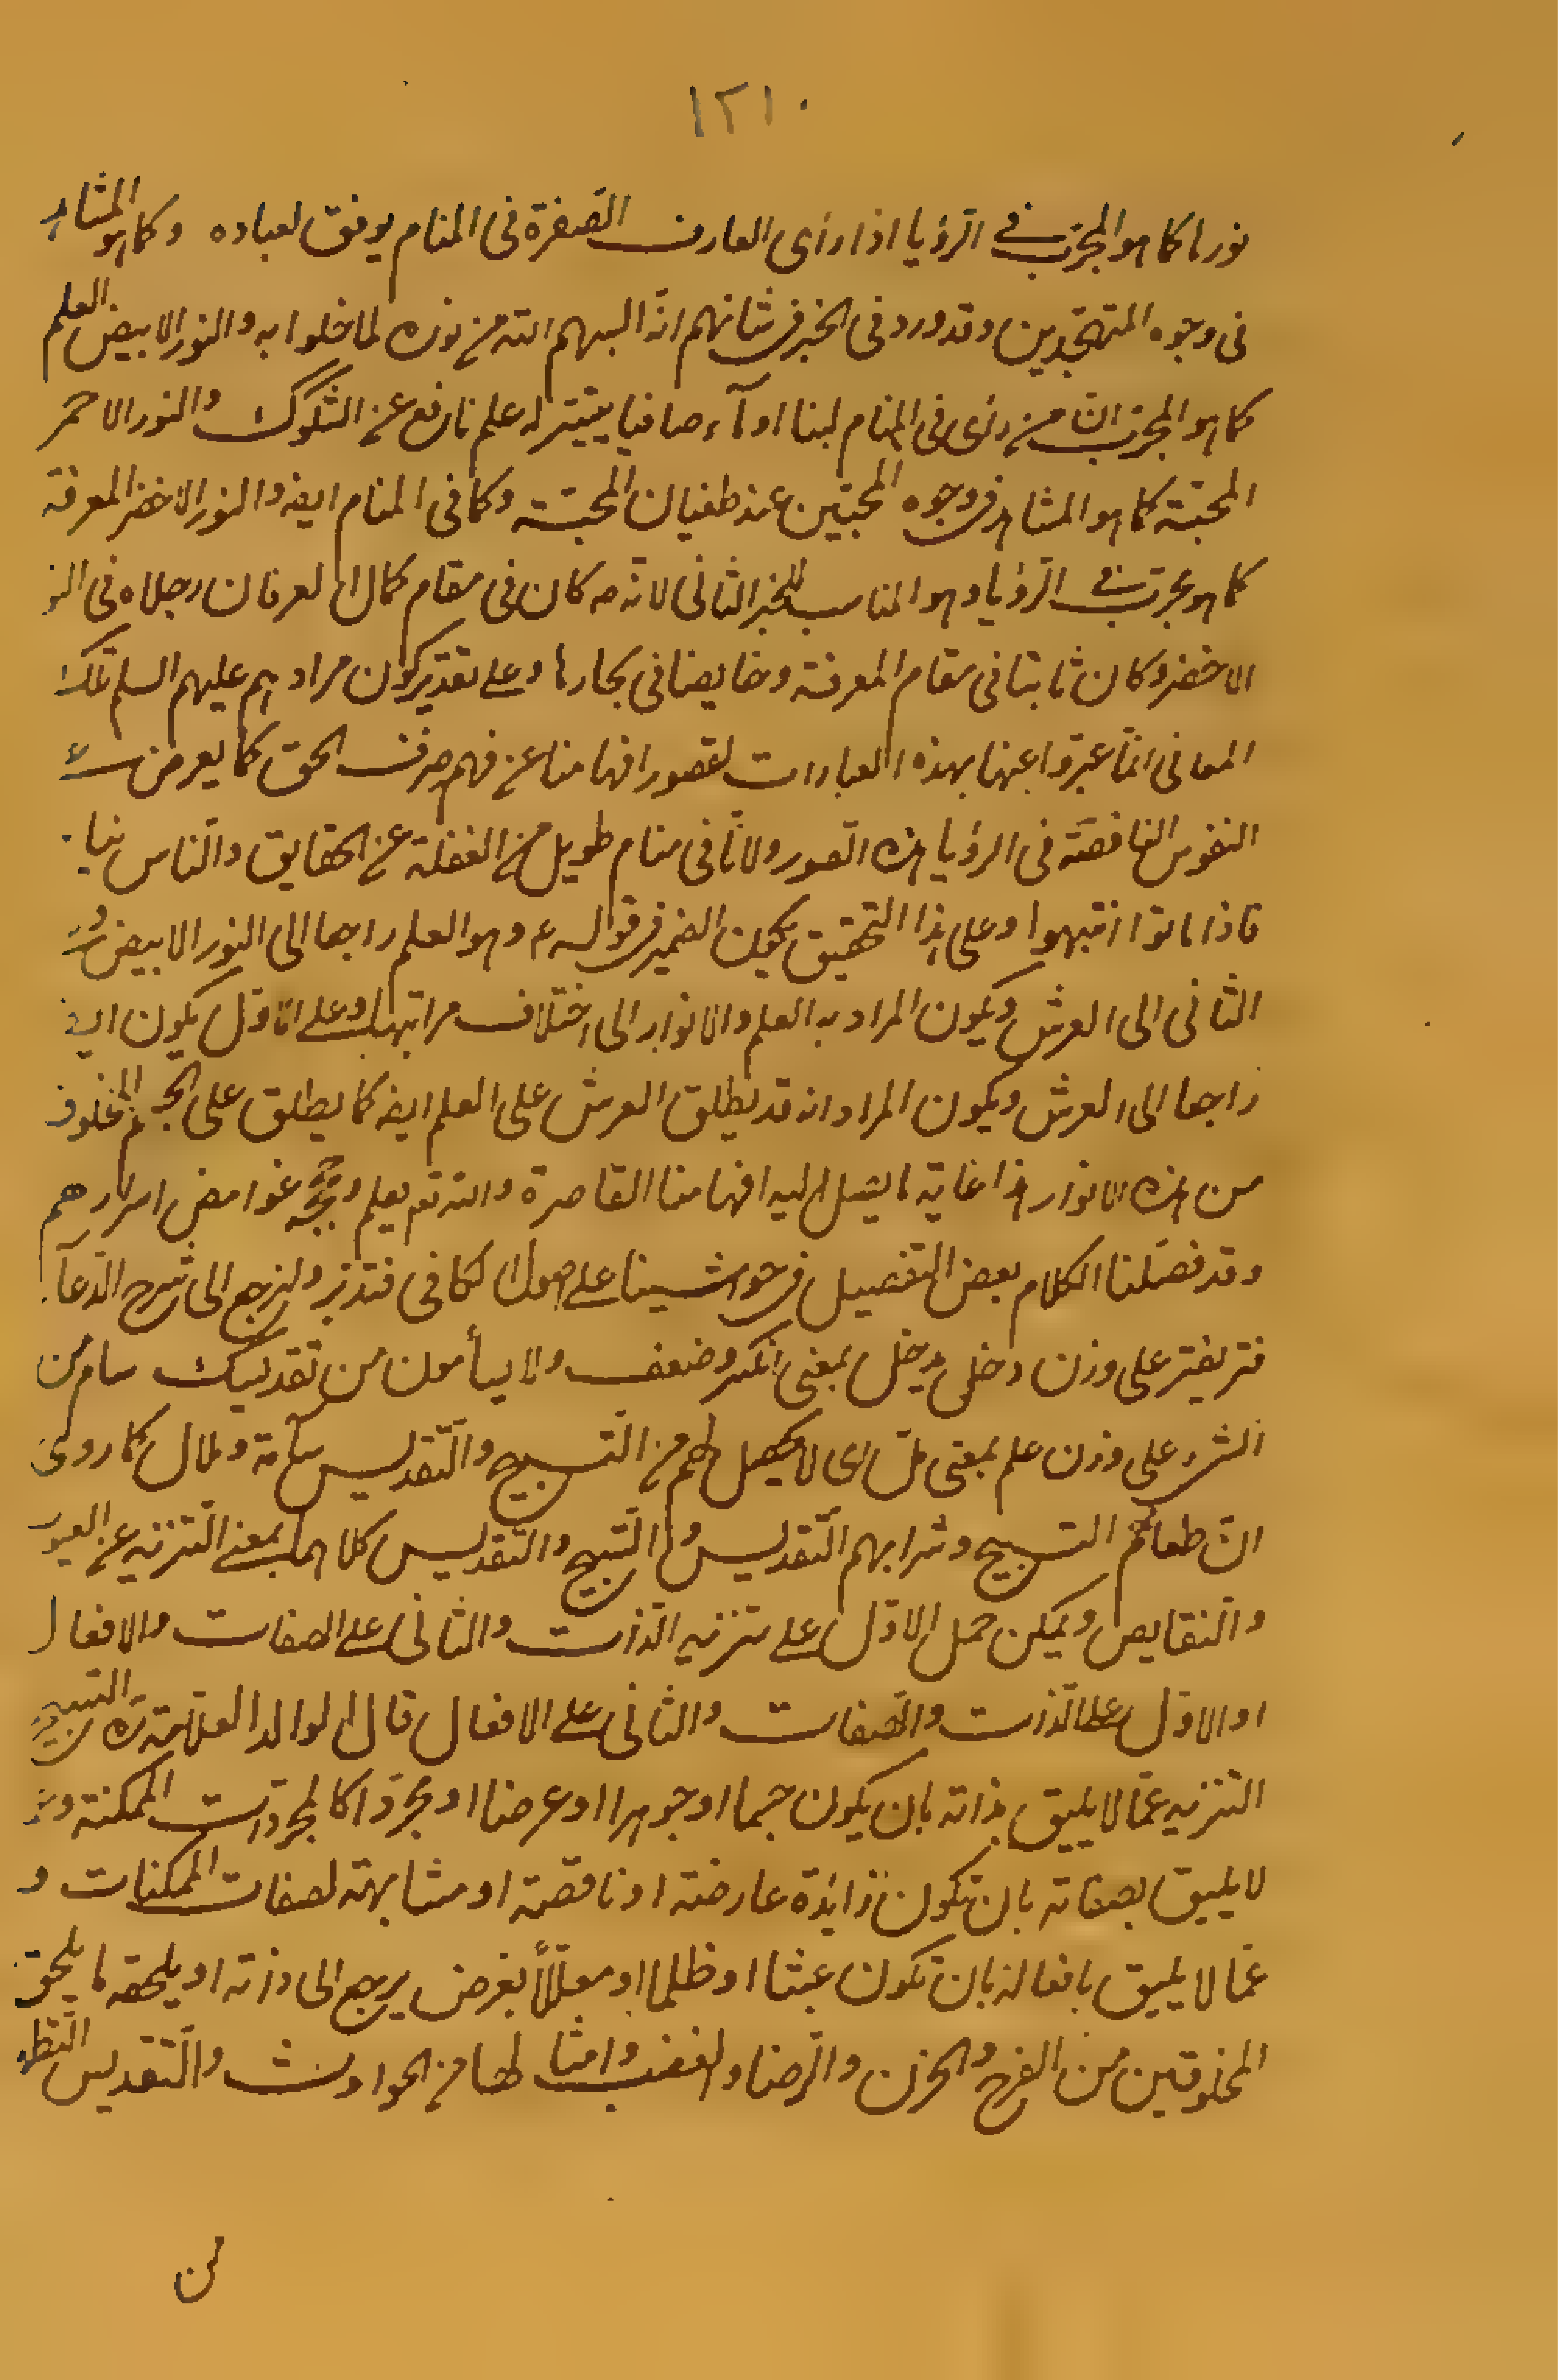 ١٢١٠
نورا كما هو المجرّب في الرّؤيا اذا رأى العارف الصّفرة فى المنام يوفق لعباده وكما هو المشاهد
فى وجوه المتهجّدين وقد ورد فى الخبر فى شانهم انّه البسهم اللّه من نوره لما خلوا به والنور الابيض العلم
كما هو المجرّب انّ من رأى فى المنام لبنا او مآء صافيا يتيسّر له علم نافع عن الشكوك والنور الاحمر
المحبّة كما هو المشاهد فى وجوه المحبّين عند طغيان المحبّة وكما فى المنام ايضا والنور الاخضر المعرفة
كما هو مجرّب في الرّؤيا وهو المناسب للخبر الثانى لانّه ص كان فى مقام كمال العرفان رجلاه فى النو
الاخضر وكان ثابتا فى مقام المعرفة وخايضا فى بحارها وعلى تقدير كون مرادهم عليهم السلم تلك
المعانى انّما عبّروا عنها بهذه العبارات لقصور افهامنا عن فهم صرف الحق كما يعرض على
النفوس الناقصة فى الرؤيا هذه الصّور ولانّا فى منام طويل من الغفلة عن الحقايق والناس نيا
فاذا ماتوا انتبهوا وعلى هذا التحقيق يكون الضمير فى قوله ع وهو العلم راجعا الى النور الابيض وعلى
الثانى الى العرش ويكون المراد به العلم والانوار الى اختلاف مراتبها وعلى الاوّل يكون ايضا
راجعا الى العرش ويكون المراد انه قد يطلق العرش على العلم ايضا كما يطلق على الجسم المخلوق
من هذه الانوار هذا غاية ما يشل اليه افهامنا القاصرة والله تع يعلم وحججه غوامض اسرارهم
وقد فصّلنا الكلام بعض التفصيل فى حواشينا على اصول الكافى فتدبّر ولنرجع الى شرح الدّعآء
فتر يفتر على وزن دخل يدخل بمعنى انكسر وضعف ولا يسأمون من تقديسك سام من
الشىء على وزن علم بمعنى ملّ اى لا يحصل لهم من التّسبيح والتّقديس سآمة وملال كما روى
انّ طعامهم التسبيح وشرابهم التّقديس والتّسبيح والتّقديس كلاهما بمعنى التنزيه عن العيوب
والنقايص ويمكن حمل الاوّل على تنزيه الذات والثانى على الصفات والافعال
او الاوّل على الذات والصّفات والثانى على الافعال قال الوالد العلّامة ره التسبيح
التنزيه عمّا لا يليق بذاته بان يكون جسما او جوهرا او عرضا او مجرّدا كالمجردات الممكنة وعمّا
لا يليق بصفاته بان تكون زايدة عارضة او ناقصة او مشابهة لصفات الممكنات و
عما لا يليق بافعاله بان تكون عبثا او ظلما او معلّلا بغرض يرجع الى ذاته او يلحقه ما يلحق
المخلوقين من الفرح والحزن والرّضا والغضب وامثالها من الحوادث والتّقديس التطه
لن